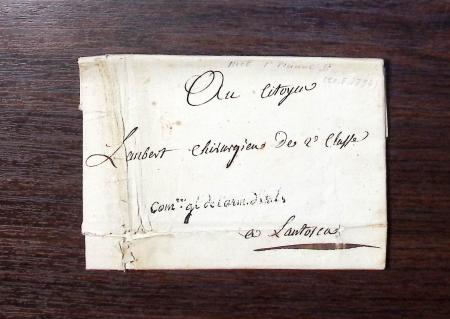 Au Citoyen
Lambert chirurgien De 2e Classe
Com.re gl de l'arm. d'Italie
a Lantosca